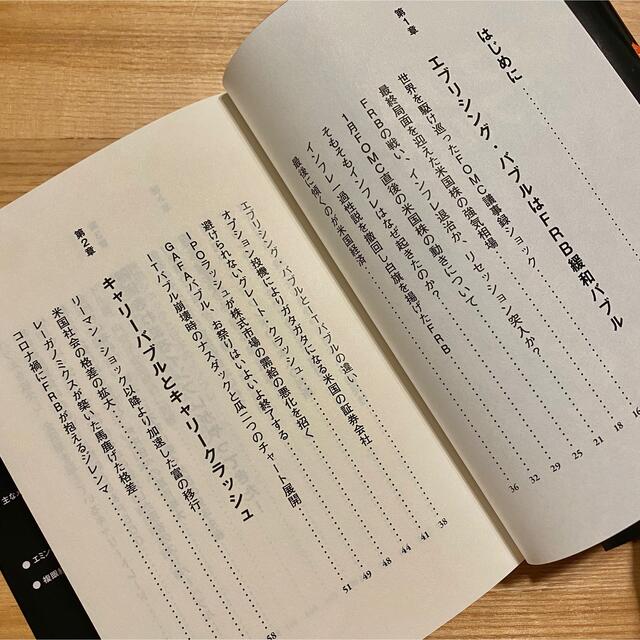 はじめに
第1章
エブリシング・バブルはFRB緩和バブル
世界を駆け巡ったFOMC議事録ショック
最終局面を迎えた米国株の強気相場 18
FRBの戦い、インフレ退治か、リセッション突入か? 21
1月FOMC直後の米国株の動きについて 25
そもそもインフレはなぜ起きたのか? 29
インフレ一過性説を撤回し白旗を揚げたFRB 32
最後に傾くのが米国経済 36
エブリシング・バブルとITバブルの違い 38
オプション投機によりガタガタになる米国の証券会社 41
避けられないグレート・クラッシュ 44
IPOラッシュが株式市場の需給の悪化を招く 44
GAFAバブル、お祭りはいよいよ終了する 48
ITバブル崩壊時のナスダックと瓜二つのチャート展開 49
51
第2章
キャリーバブルとキャリークラッシュ
リーマン・ショック以降より加速した富の移行
米国社会の格差の拡大
レーガノミクスが築いた馬鹿げた格差
コロナ禍にFRBが抱えるジレンマ
58
主な
●エミン
●複眼